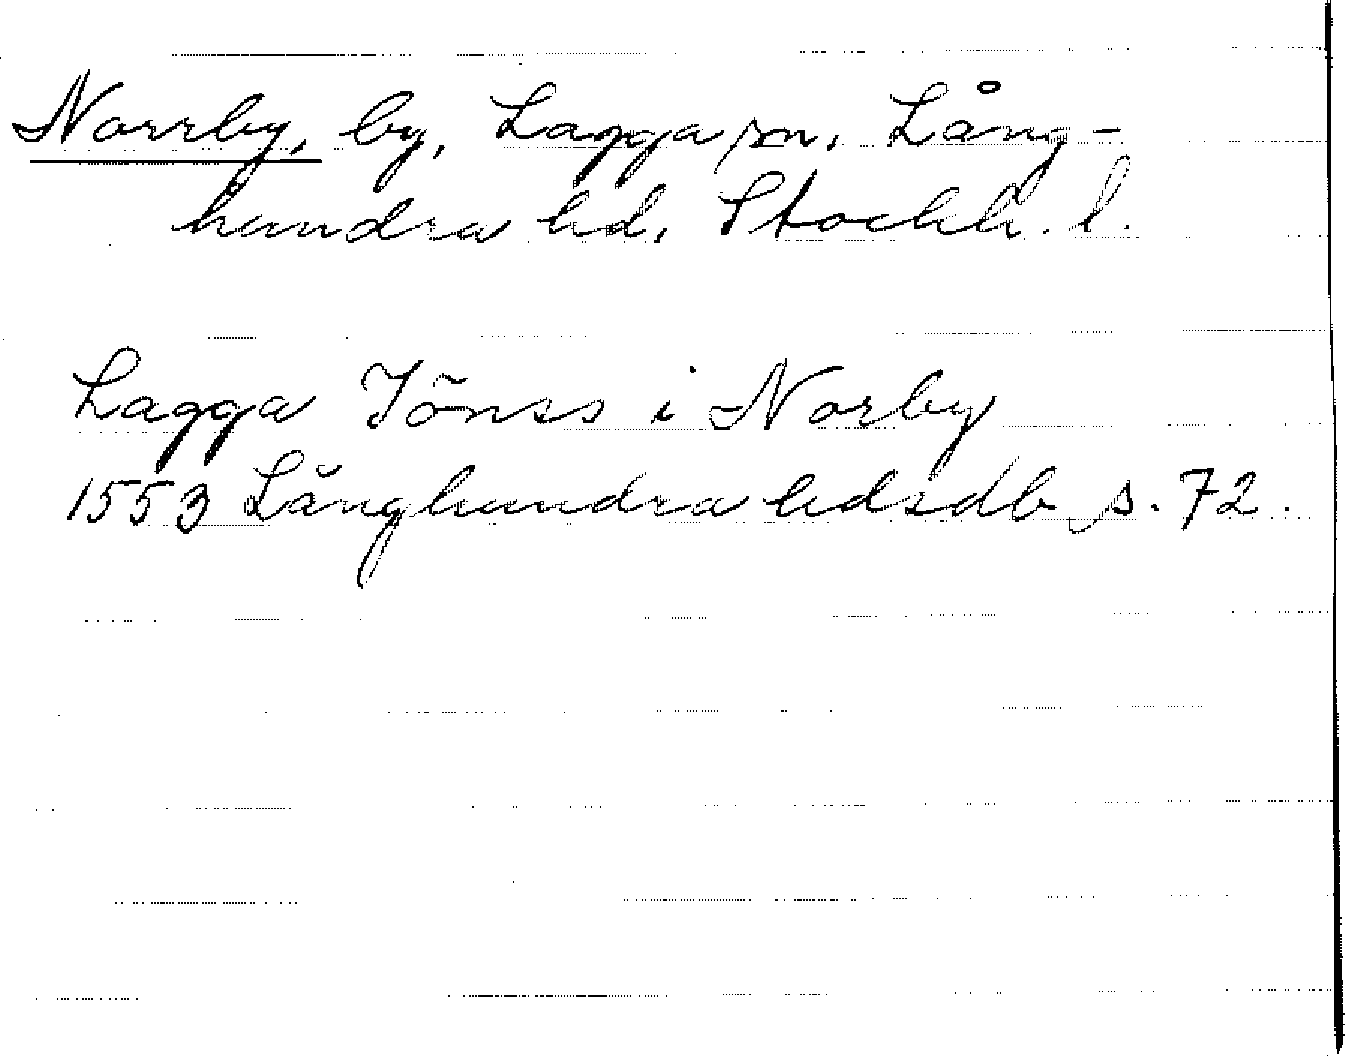 Norrby, by, Lagga sn, Lång-
hundra hd, Stockh. l.
Lagga Jönss i Norby
1553 Långhundra hdsdb s. 72.